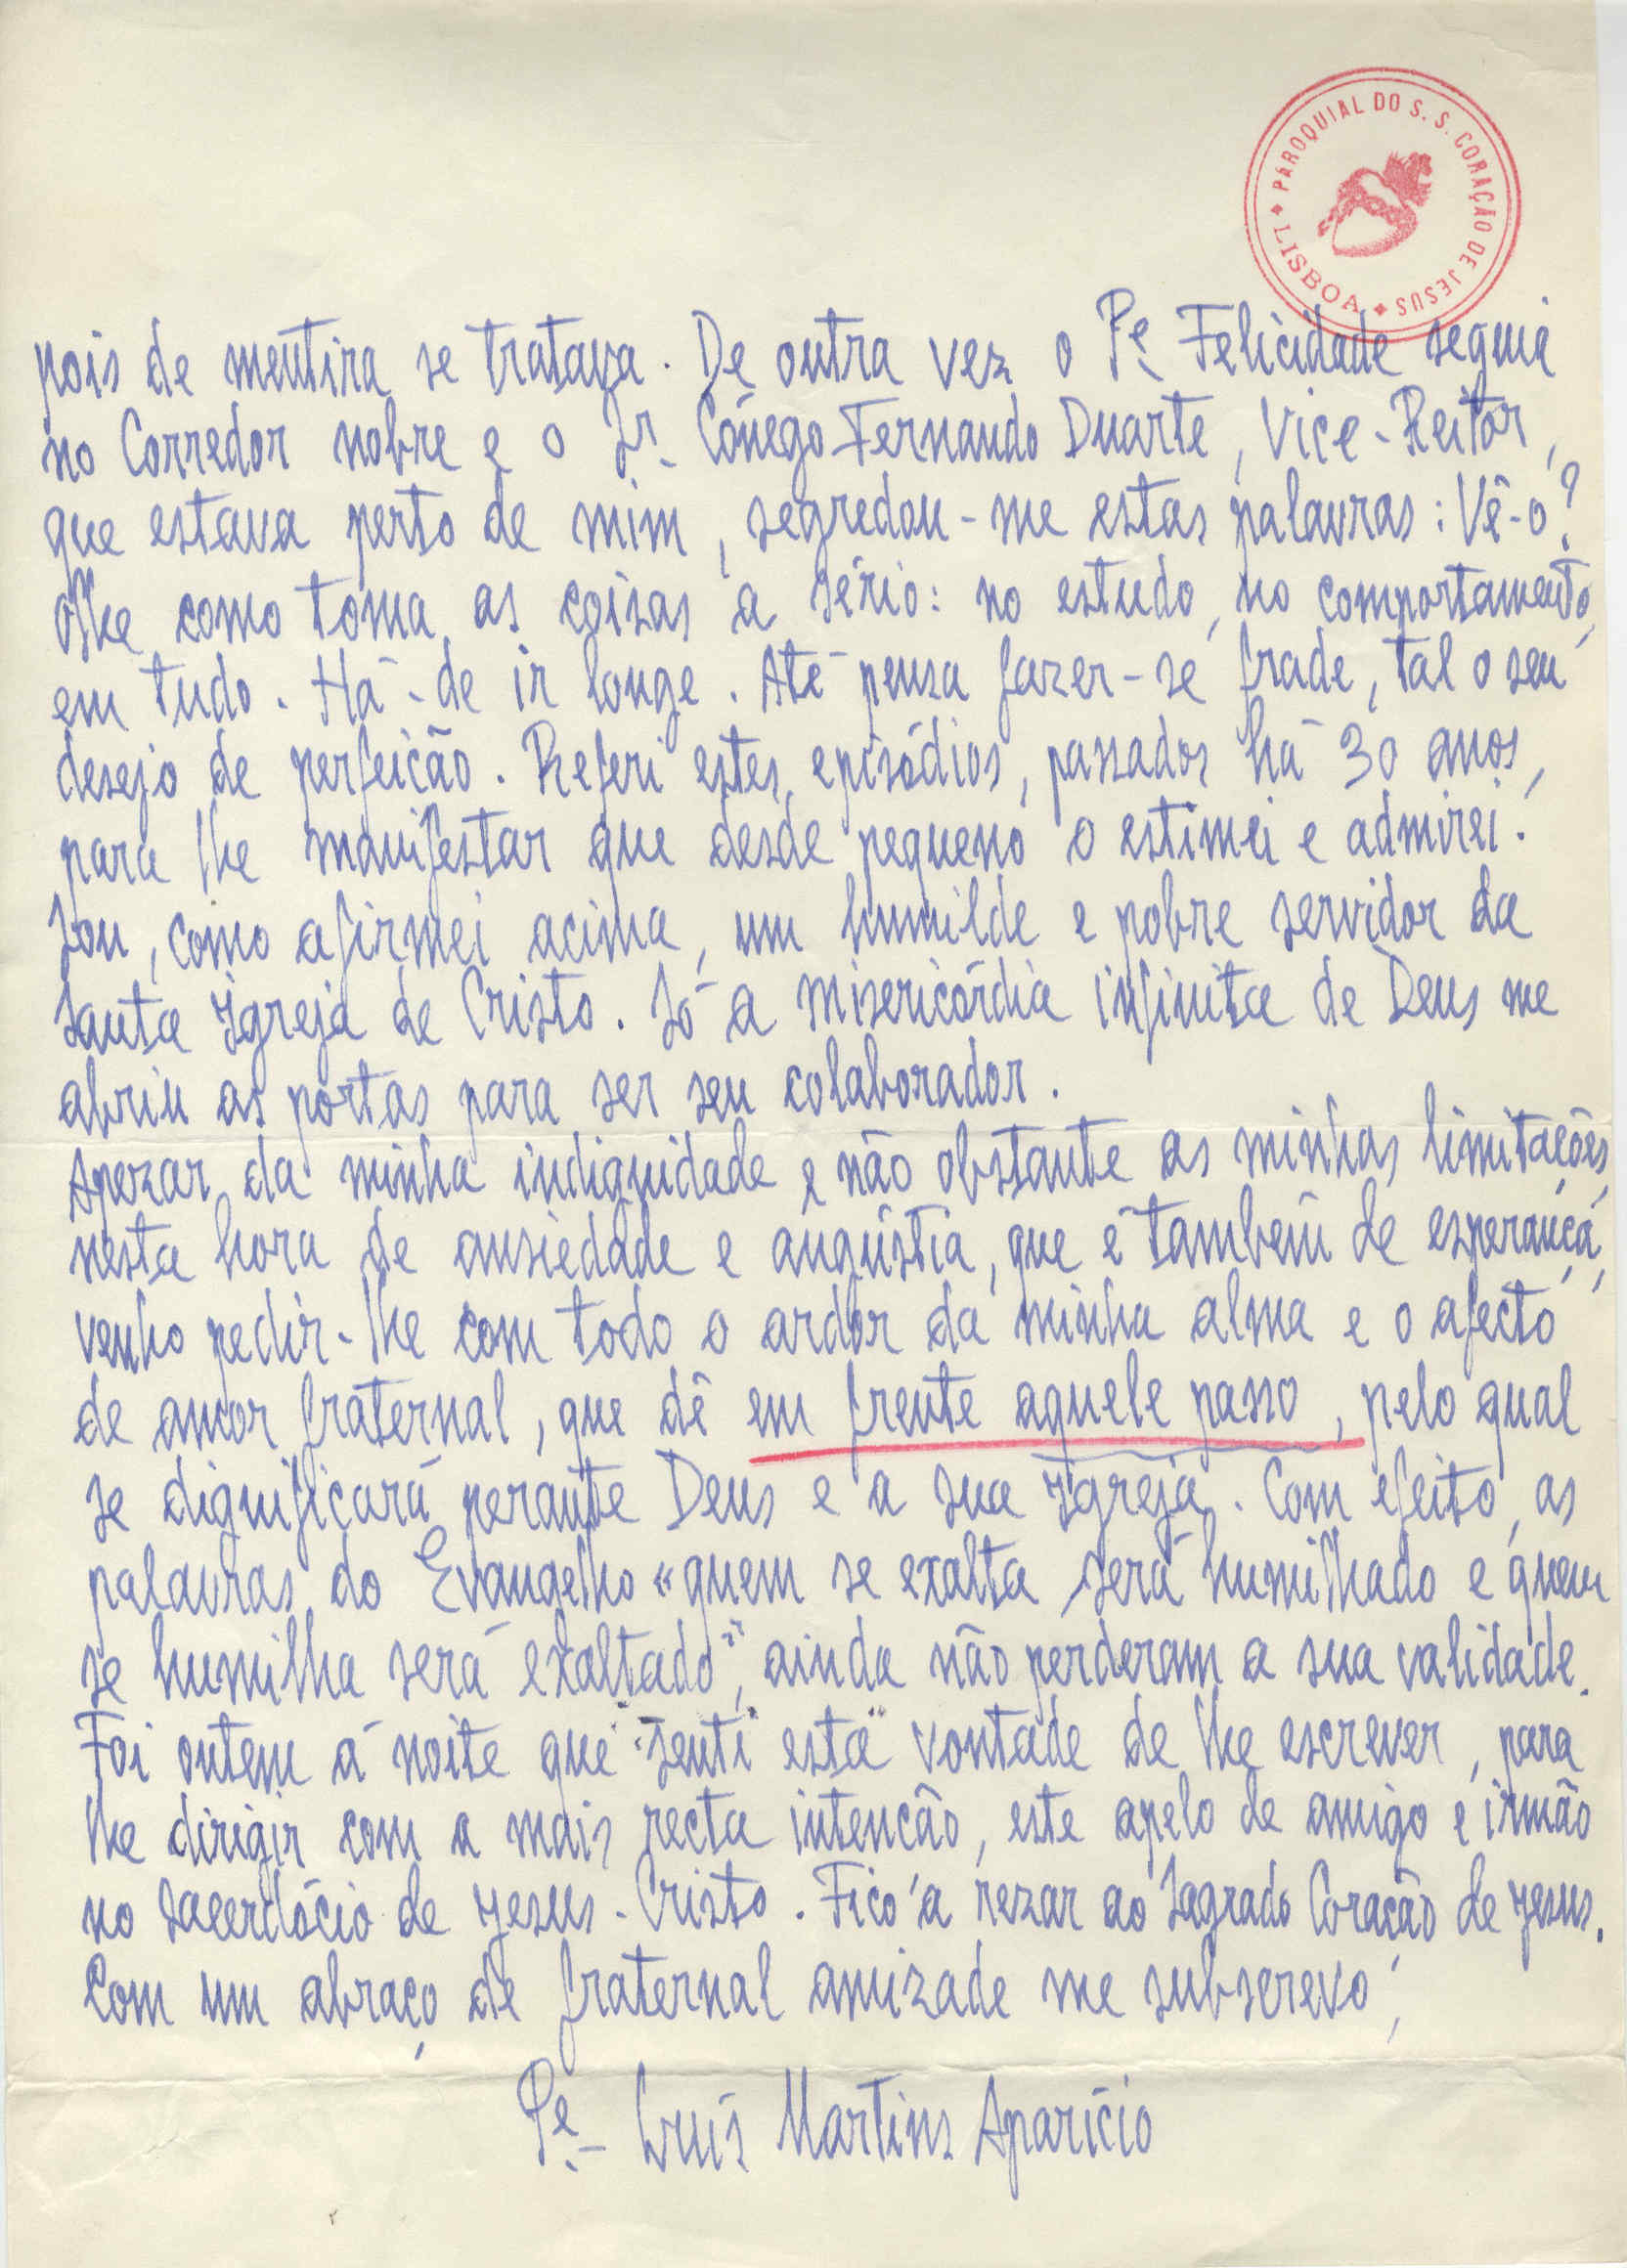 PAROQUIAL DO S. S. CORAÇÃO DE JESUS
LISBOA
pois de mentira se tratava. De outra vez o Pe. Felicidade seguia
no Corredor nobre e o Sr. Cónego Fernando Duarte, Vice-Reitor,
que estava perto de mim, segredou-me estas palavras: Vê-o?
Olhe como toma as coisas a sério: no estudo, no comportamento,
em tudo. Há-de ir longe. Até pensa fazer-se frade, tal o seu
desejo de perfeição. Referi estes episódios, passados há 30 anos,
para lhe manifestar que desde pequeno o estimei e admirei.
Sou, como afirmei acima, um humilde e pobre servidor da
Santa Igreja de Cristo. Só a misericórdia infinita de Deus me
abriu as portas para ser seu colaborador.
Apezar da minha indignidade e não obstante as minhas limitações,
nesta hora de ansiedade e angústia, que é também de esperança,
venho pedir-lhe com todo o ardor da minha alma e o afecto
de amor fraternal, que dê em frente aquele passo, pelo qual
se dignificará perante Deus e a sua Igreja. Com efeito, as
palavras do Evangelho «quem se exalta será humilhado e quem
se humilha será exaltado", ainda não perderam a sua validade.
Foi ontem á noite que senti esta vontade de lhe escrever, para
lhe dirigir com a mais recta intenção, este apelo de amigo e irmão
no sacerdócio de Jesus-Cristo. Fico a rezar ao Sagrado Coração de Jesus.
Com um abraço de fraternal amizade me subscrevo,
Pe. Luís Martins Aparício